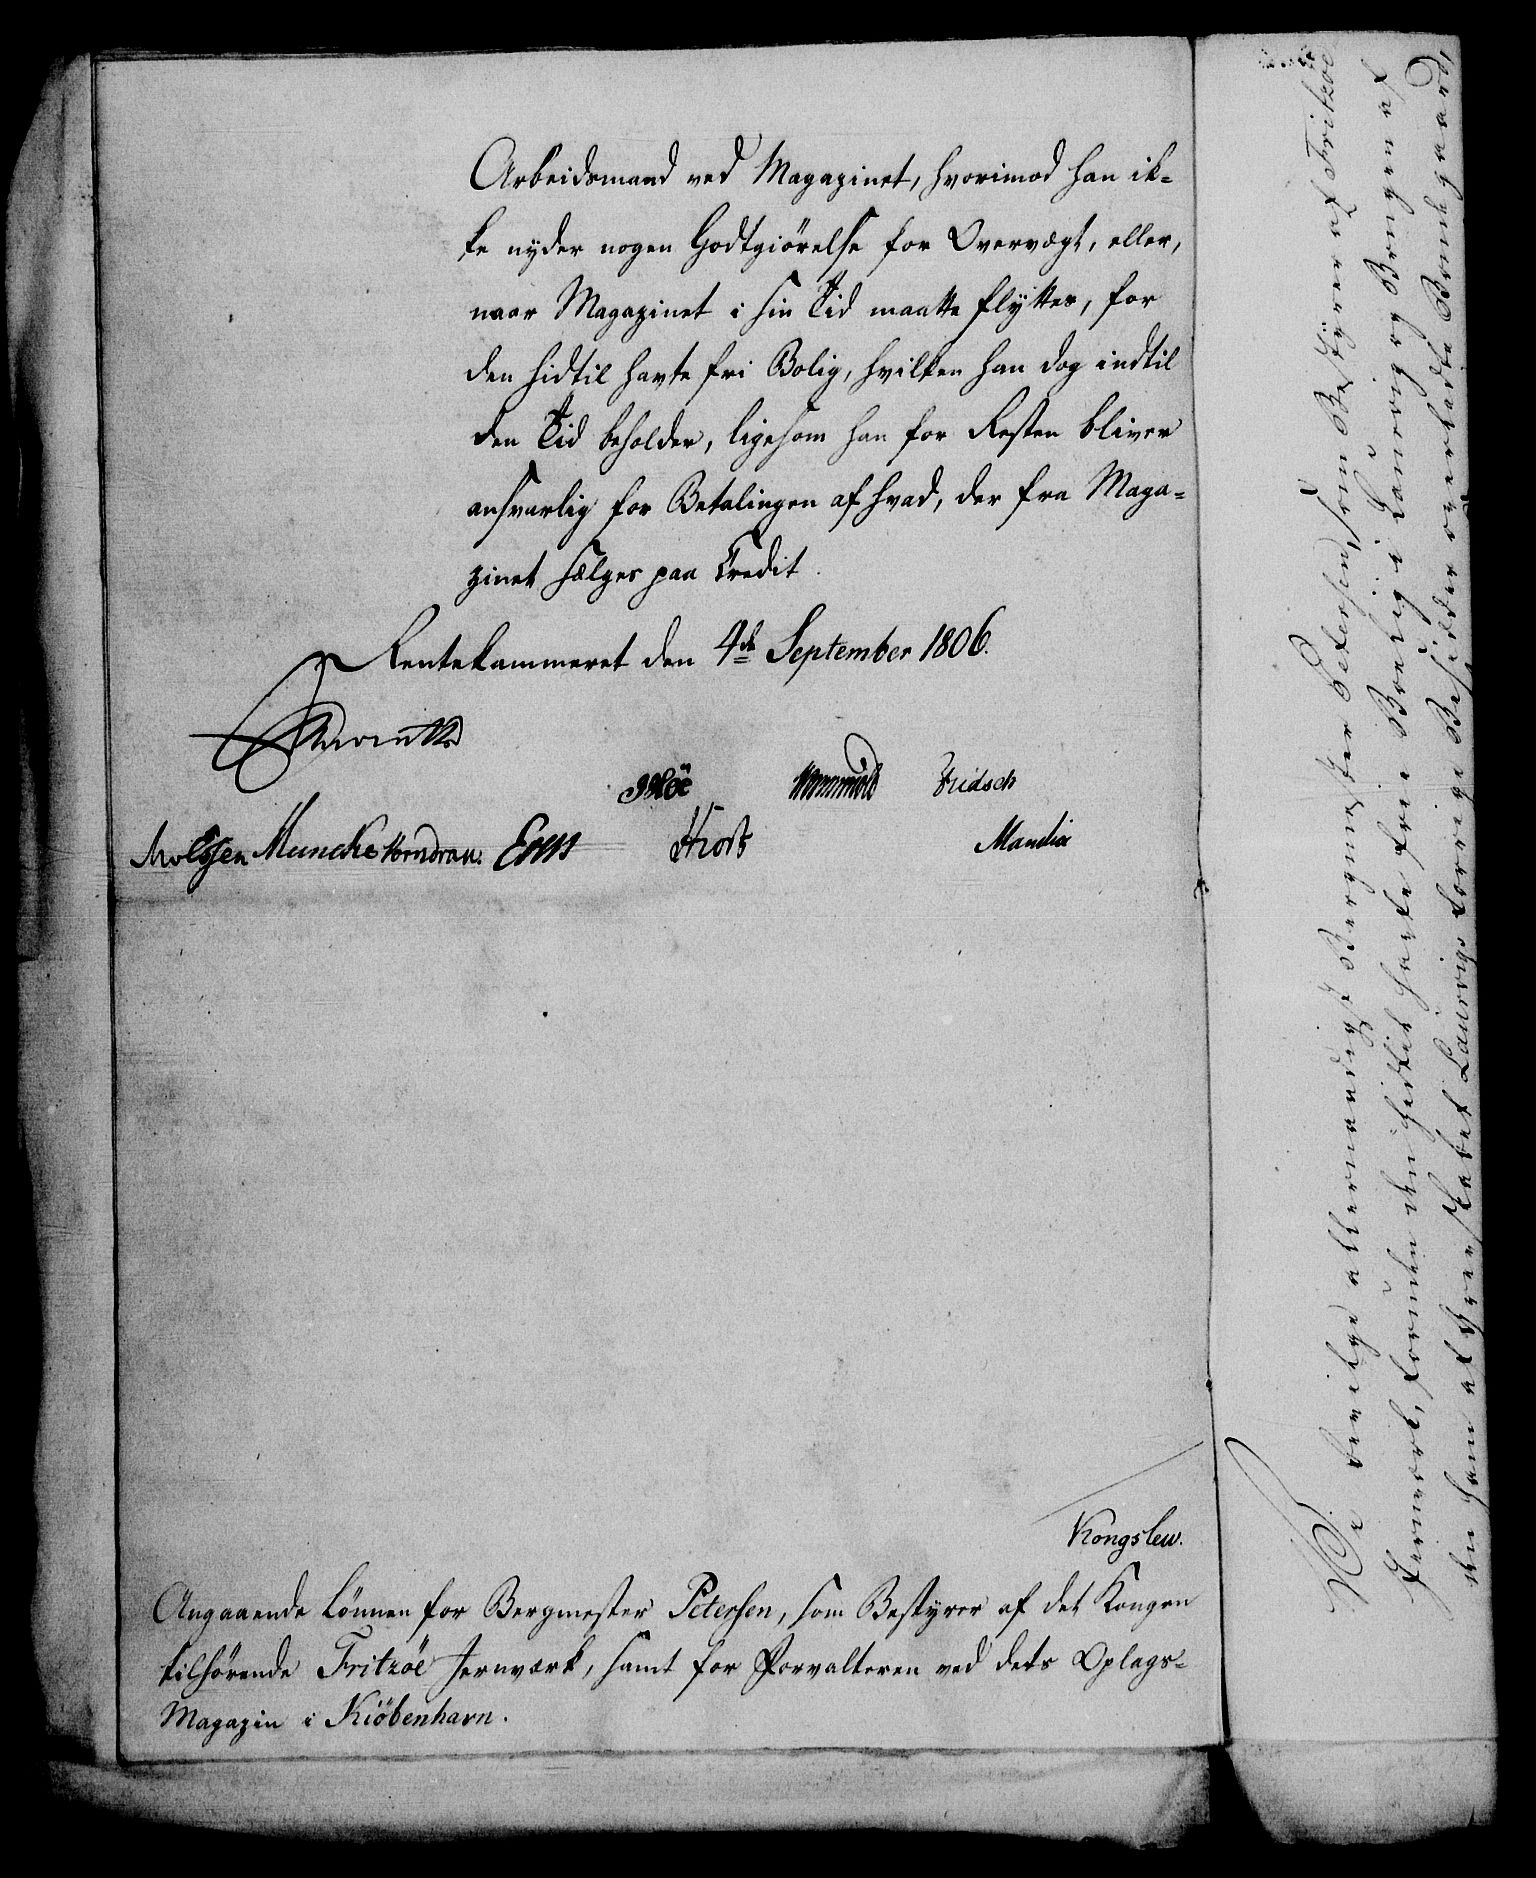 Arbeidsmand ved Magazinet, hvorimod han ik-
ke nyder nogen Godtgiörelse for Overvægt, eller,
naar Magazinet i sin Tid maatte flyttes, for
den hidtil havte fri Bolig, hvilken han dog indtil
den Tid beholder, ligesom han for Resten bliver
ansvarlig for Betalingen af hvad, der fra Maga-
zinet sælges paa Credit.
Rentekammeret den 4de September 1806.
Fridsch
Molssen Muncke Hiort
Kongslew.
Angaaende Lönnen for Bergmester Petersen, som Bestyrer af det Kongen
tilhörende Fritzöe Jernværk, samt for Forvalteren ved dets Oplags-
Magazin i Kiöbenhavn.
Vi bevilge allernaadigst Bergmester Petersen, som Bestyrer af Fritzöe
Jernværk, foruden den hidtil havte frie Bolig i Laurvig og Brugen af
den ham af Grevskabet Laurvigs forrige Besidder overladte Brunkgaard,